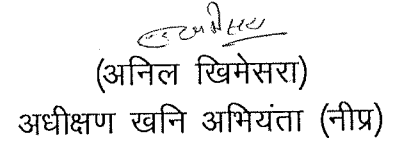 (अनिल खिमेसरा)
अधीक्षण खनि अभियंता (नीप्र)